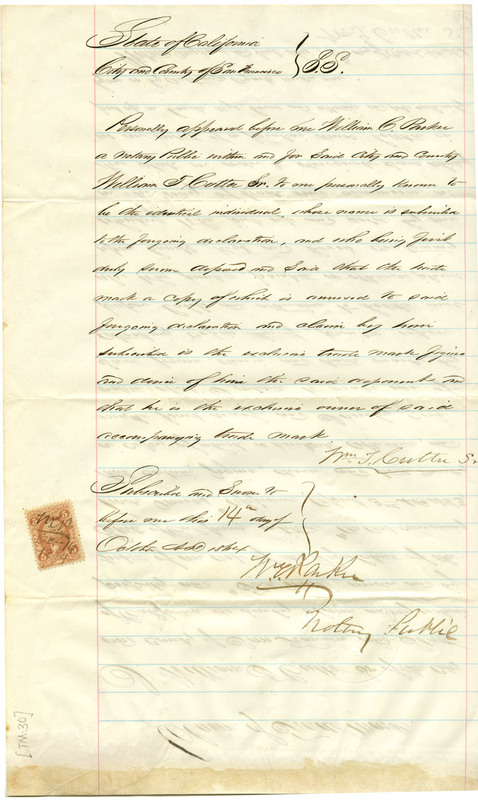 State of California
City and County of San Francisco } S.S.
Personally appeared before me William C. Parker
a Notary Public within and for Said City and County
William T. Cutter Sr. to me personally known to
be the identical individual, whose name is subscribed
to the foregoing declaration, and who being first
duly sworn deposed and Said that the trade
mark a copy of which is annexed to said
foregoing declaration and claim by him
subscribed is the exclusive trade mark figure
and device of him the said deponent and
that he is the exclusive owner of said
accompanying trade mark
Wm. T. Cutter Sr
Subscribed and Sworn to
before me this 14th day of
October A.D.
Wm C Parker
Notary Public
[TM-30]